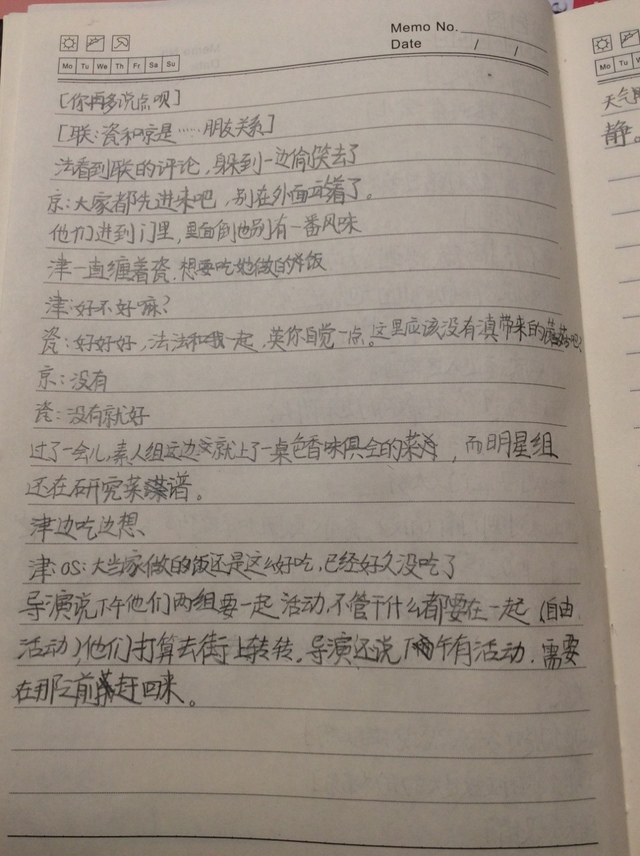 Memo No.
Date / /
Mo Tu We Th Fr Sa Su
[你再多说点呗]
[联:瓷和京是……朋友关系]
法看到联的评论,躲到一边偷笑去了
京:大家都先进来吧,别在外面站着了。
他们进到门里,里面倒也别有一番风味
津一直缠着瓷,想要吃她做的炸饭
津:好不好嘛?
瓷:好好好,法法和我一起,英你自觉一点。这里应该没有滇带来的蘑菇吧?
京:没有
瓷:没有就好
过了一会儿,素人组这边就上了一桌色香味俱全的菜,而明星组
还在研究菜谱。
津边吃边想、
津:os:大当家做的饭还是这么好吃,已经好久没吃了
导演说下午他们两组要一起活动,不管干什么都要在一起(自由
活动)他们打算去街上转转,导演还说下午有活动,需要
在那之前赶回来。
Mo Tu
天气
静。